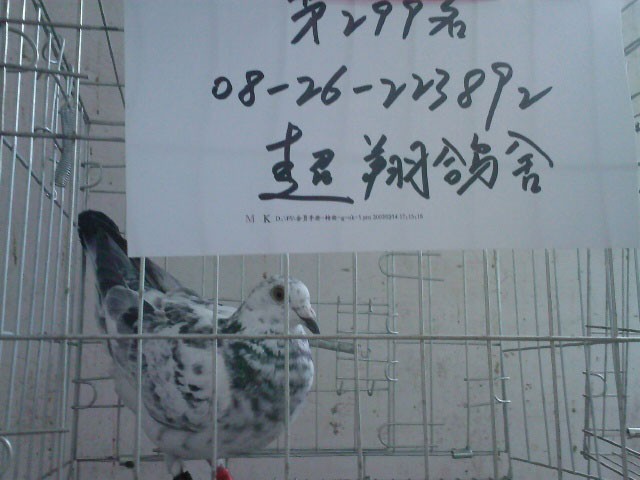 第299名
08-26-223892
超翔鸽舍
M K